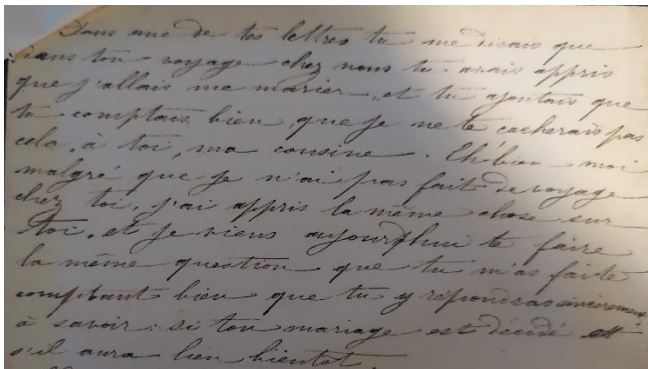 Dans une de tes lettres tu me disais que
dans ton voyage chez nous tu avais appris
que j'allais me marier, et tu ajoutais que
tu comptais bien que je ne te cacherais pas
cela, à toi, ma cousine. Eh! bien moi
malgré que je n'ai pas fait de voyage
chez toi, j'ai appris la même chose sur
toi, et je viens aujourd'hui te faire
la même question que tu m'as faite
comptant bien que tu y répondras sincèrement
à savoir: si ton mariage est décidé et
s'il aura lieu bientot.